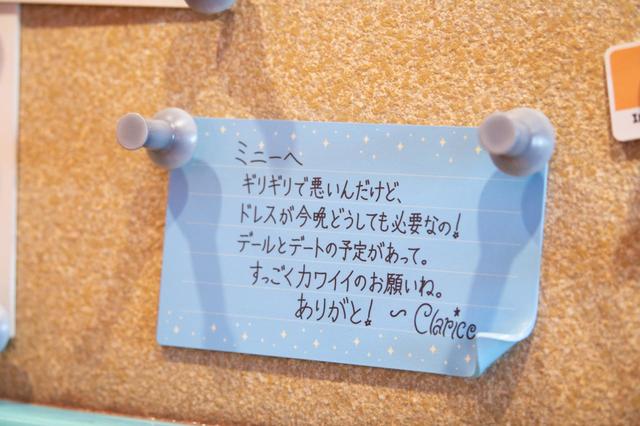 ミニーへ
ギリギリで悪いんだけど、
ドレスが今晩どうしても必要なの!
デールとデートの予定があって。
すっごくカワイイのお願いね。
ありがと! ~ Clarice